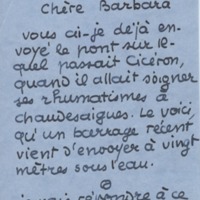 Chère Barbara
vous ai-je déjà en-
voyé le pont sur le-
quel passait Cicéron,
quand il allait soigner
ses rhumatismes à
chaudesaigues. Le voici,
qu'un barrage récent
vient d'envoyer à vingt
mètres sous l'eau.
répondre à ce